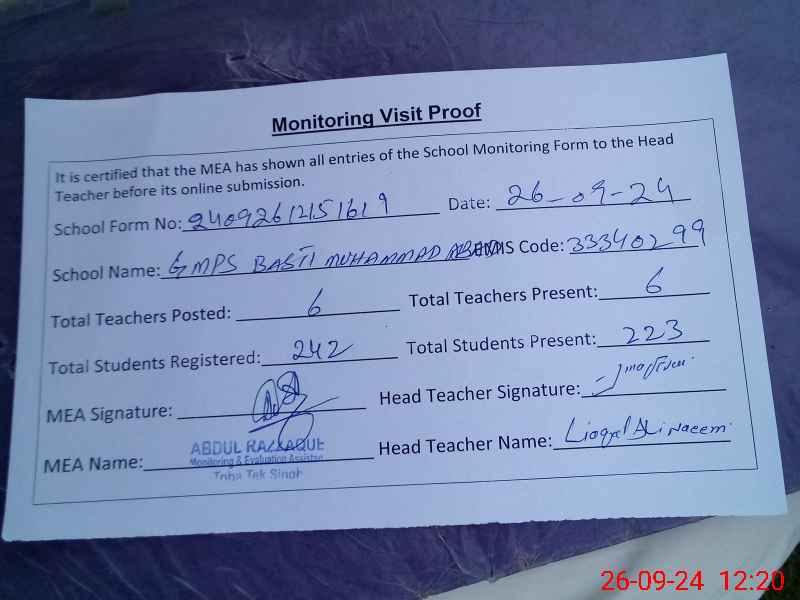 Monitoring Visit Proof
It is certified that the MEA has shown all entries of the School Monitoring Form to the Head
Teacher before its online submission.
School Form No: 24092612151619 Date: 26-09-24
School Name: GMPS BASTI MUHAMMAD EMIS Code: 33340299
Total Teachers Posted: 6 Total Teachers Present: 6
Total Students Registered: 242 Total Students Present: 223
MEA Signature: Head Teacher Signature:
MEA Name: ABDUL RAZZAQUE Head Teacher Name: Liaqat Ali Naeem
Monitoring & Evaluation Assistant
Toba Tek Singh
26-09-24 12:20